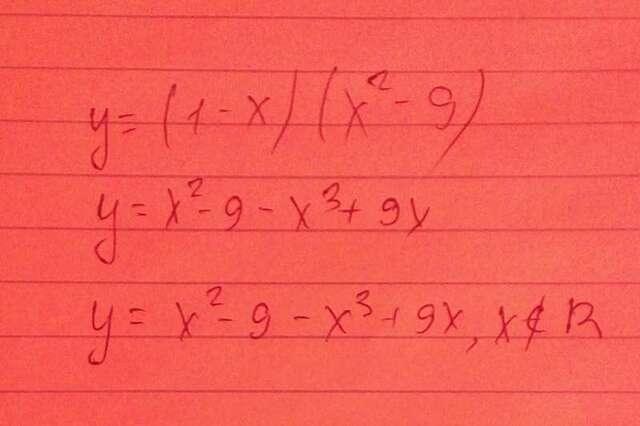 y = (1 - x)(x² - 9)
y = x² - 9 - x³ + 9x
y = x² - 9 - x³ + 9x, x ∉ R